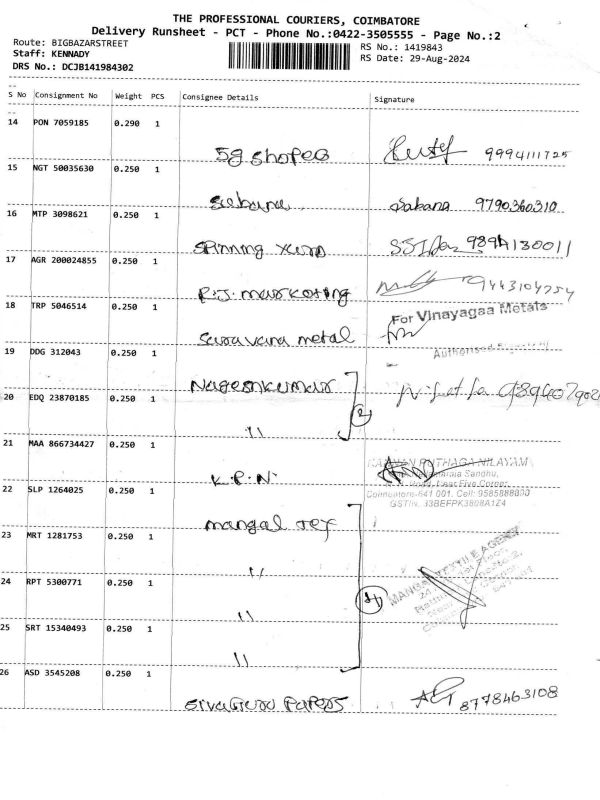 THE PROFESSIONAL COURIERS, COIMBATORE
Delivery Runsheet - PCT - Phone No.:0422-3505555 - Page No.:2
Route: BIGBAZARSTREET
Staff: KENNADY
DRS No.: DCJB141984302
RS No.: 1419843
RS Date: 29-Aug-2024
S No Consignment No Weight PCS Consignee Details Signature
14 PON 7059185 0.290 1
5g shopee 9994111725
15 NGT 50035630 0.250 1
Sabana 9790360310
16 MTP 3098621 0.250 1
Spinning 9894130011
17 AGR 200024855 0.250 1
R.J. marketing 9443104754
18 TRP 5046514 0.250 1
For Vinayagaa Metals
Saravana metal
Authorised Signatory
19 DDG 312043 0.250 1
Nageshkumar
20 EDQ 23870185 0.250 1
" 2
21 MAA 866734427 0.250 1
K.P.N. PUTHAGA NILAYAM
22 SLP 1264025 0.250 1
Near Five Corner,
Coimbatore-641 001. Cell: 9585888000
GSTIN. 33BEFPK3808A1Z4
mangal tex
23 MRT 1281753 0.250 1
"
MANGAL TEXTILE AGENCY
24 RPT 5300771 0.250 1
" 4
25 SRT 15340493 0.250 1
"
26 ASD 3545208 0.250 1
Sivaguru Papers 8778463108